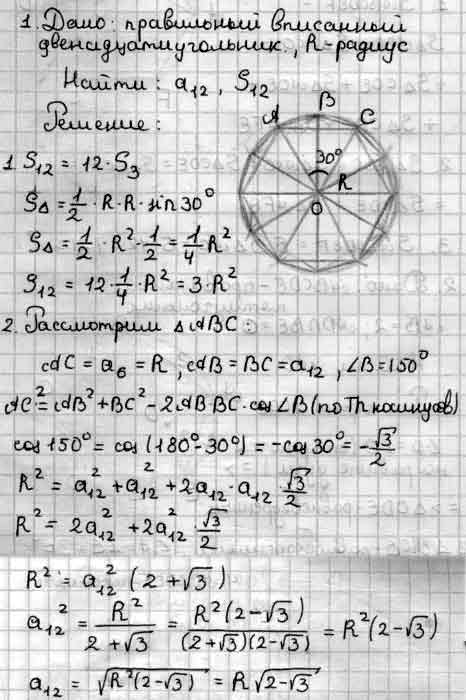 1. Дано: правильный вписанный
двенадцатиугольник, R-радиус
Найти: a₁₂, S₁₂
Решение:
A B C
30°
R
O
1. S₁₂ = 12 · S₃
S△ = 1/2 · R · R · sin 30°
S△ = 1/2 · R² · 1/2 = 1/4 R²
S₁₂ = 12 · 1/4 · R² = 3 · R²
2. Рассмотрим △ABC:
AC = a₆ = R, AB = BC = a₁₂, ∠B = 150°
AC² = AB² + BC² - 2AB BC · cos ∠B (по Th косинусов)
cos 150° = cos (180° - 30°) = -cos 30° = -√3/2
R² = a₁₂² + a₁₂² + 2a₁₂ · a₁₂ · √3/2
R² = 2a₁₂² + 2a₁₂² · √3/2
R² = a₁₂² (2 + √3)
a₁₂² = R²/(2 + √3) = R²(2 - √3)/((2 + √3)(2 - √3)) = R²(2 - √3)
a₁₂ = √(R²(2 - √3)) = R√(2 - √3)